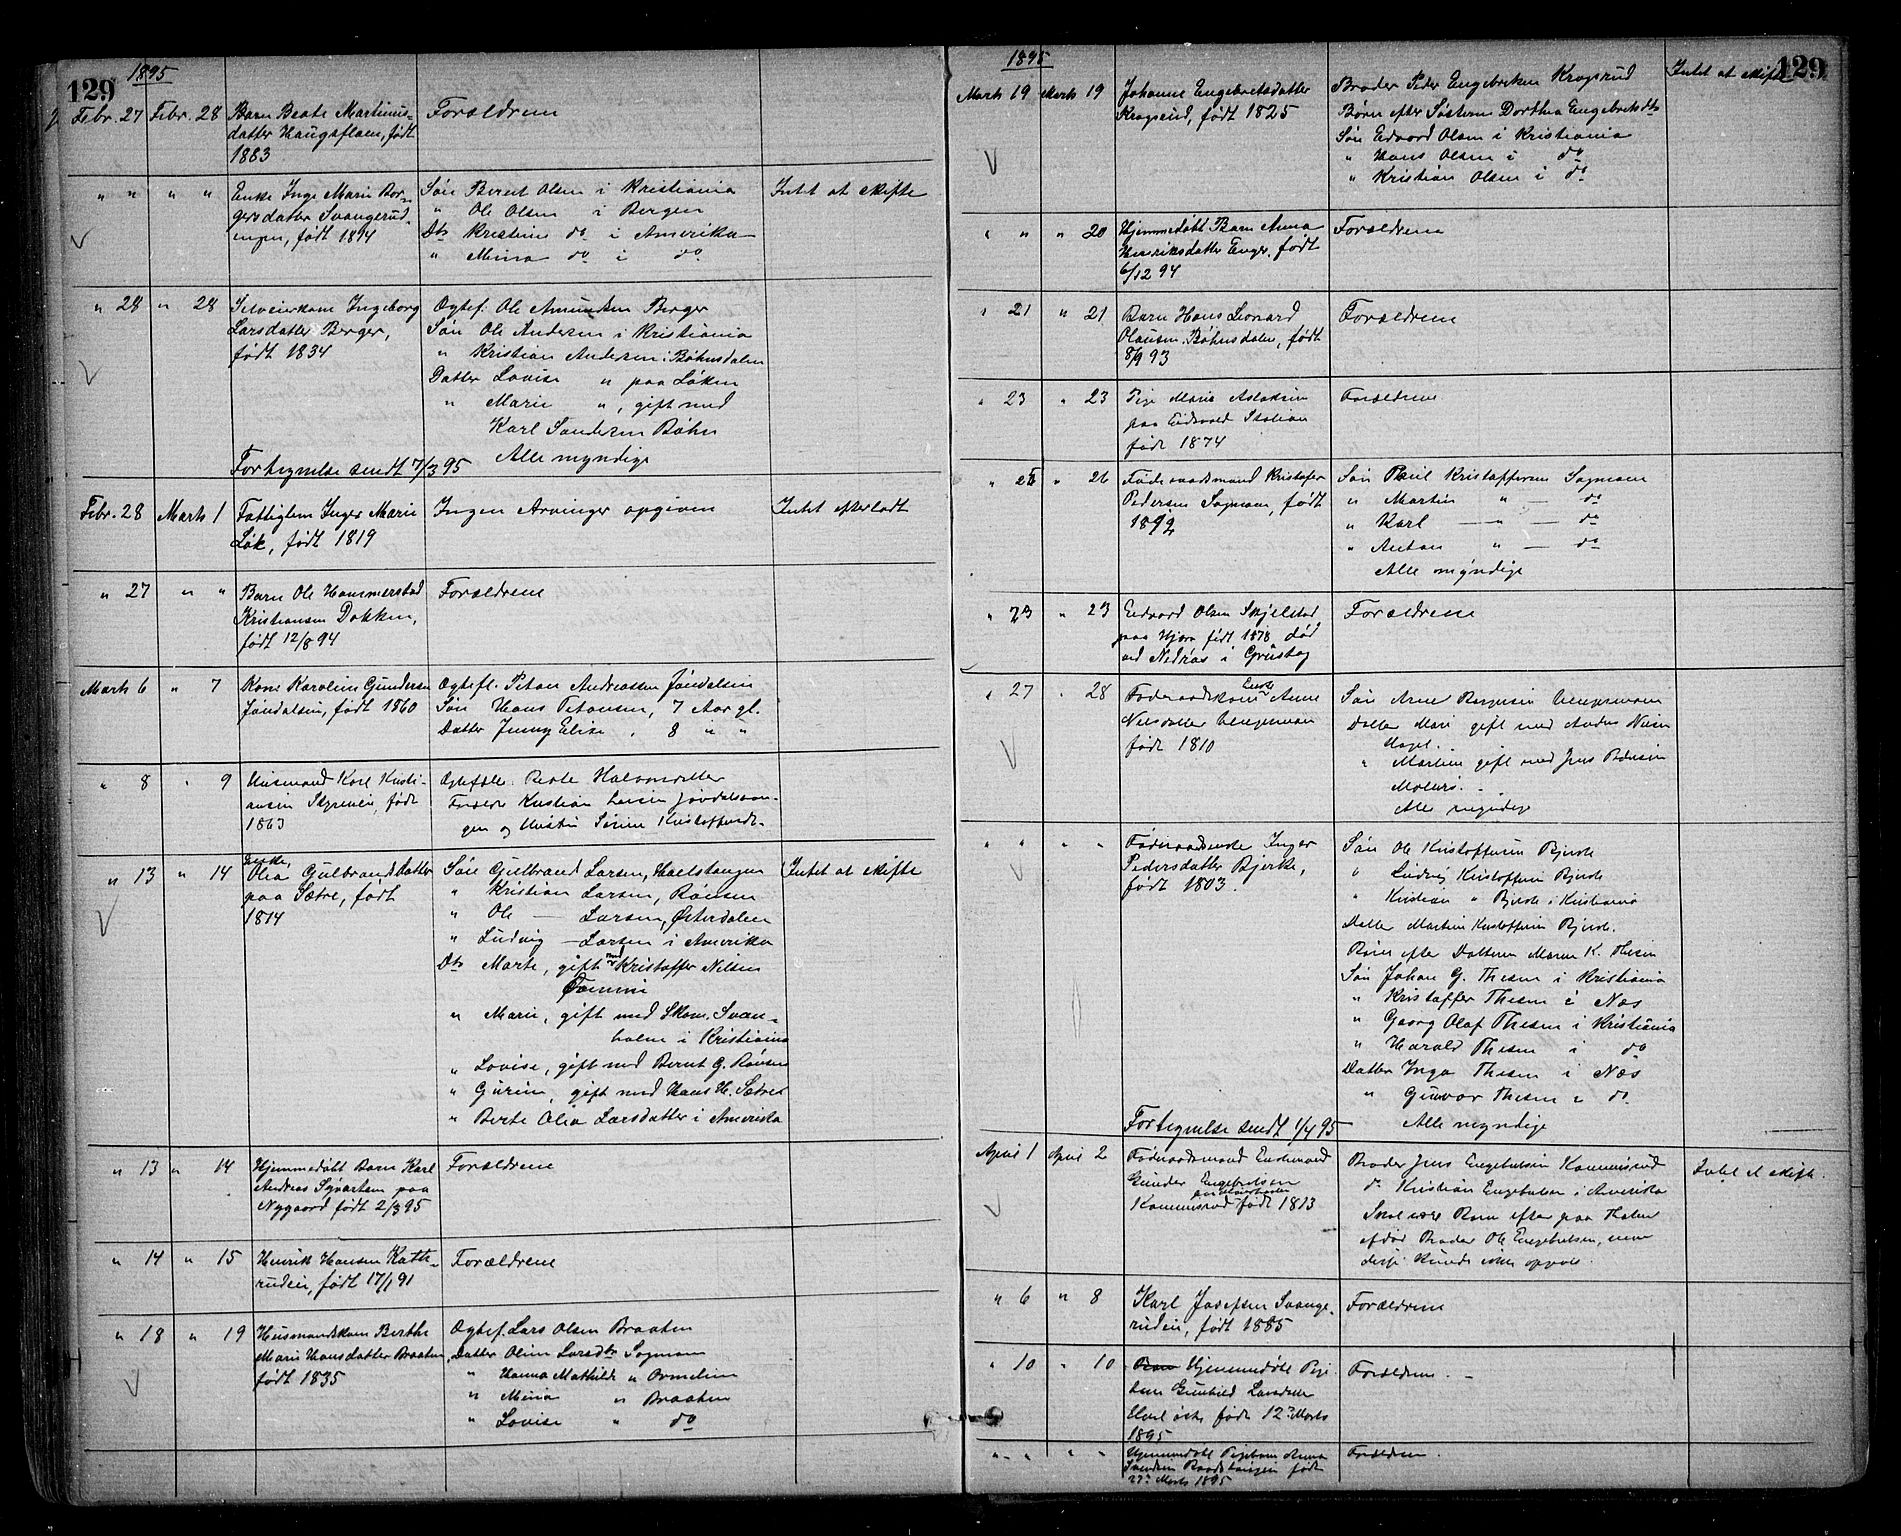 129
1895
Febr. 27 Febr. 28 Barn Beate Martinus- Forældrene
datter Haugsflaen, født
1883
" " " " Enke Inge Marie Bor- Søn Bernt Olsen i Kristiania Intet at skifte
gersdatter Svangerud- " Ole Olsen i Bergen
engen, født 1814 Dtr Kristine do i Amerika
" Mina do i do
" 28 " 28 Selveierkone Ingeborg Ægtef. Ole Amundsen Berger
Larsdatter Berger, Søn Ole Andersen i Kristiania
født 1834 " Kristian Andersen i Bøhnsdalen
Datter Lovise " paa Løken
" Marie ", gift med
Karl Sandersen Bøhn
Fortegnelse sendt 7/3 95 Alle myndige
Febr. 28 Marts 1 Fattiglem Inger Marie Ingen Arvinger opgiven Intet efterladt
Løk, født 1819
" 27 " " Barn Ole Hammerstad Forældrene
Kristiansen Dokken,
født 12/8 94
Marts 6 " 7 Kone Karoline Gundersen Ægtefl. Petan Andreassen Jøndalseie
Jøndalseie, født 1860 Søn Hans Petansen, 7 Aar gl.
Datter Jenny Elise, 8 " "
" 8 " 9 Husmand Karl Kristi- Ægtefæle. Berte Halvorsdatter
ansen Styreneie, født Forældre Kristian Larsen
1863 og Hustru Sørine Kristoffersdr.
" 13 " 14 Enke, Olea Gulbrandsdatter Søn Gulbrand Larsen, Haelstangen Intet at skifte
paa Sætre, født " Kristian Larsen, Røisen
1814 " Ole — Larsen, Østerdalen
" Ludvig — Larsen i Amerika
Dtr Marte, gift med Kristoffer Nilsen
" Marie, gift med Skom. Svan-
holm i Kristiania
" Lovise, gift med Bernt G. Røisen
" Gurine, gift med Hans H. Sætre
" Berte Olea Larsdatter i Amerika
" 13 " 14 Hjemmedøbt Barn Karl Forældrene
Andreas Syvertsen paa
Nygaard født 2/3 95
" 14 " 15 Henrik Hansen Kath- Forældrene
rudeie, født 17/1 91
" 18 " 19 Husmandskone Berthe Ægtef. Lars Olsen Braaten
Marie Hansdatter Braaten, Datter Oline Larsdtr Sogman
født 1835 " Hanna Mathilde " Ormelien
" Mina " Braaten
" Lovise " do
1895
129
Marts 19 Marts 19 Johanne Engebretsdatter Broder Peder Engebretsen Krogsrud Intet at skifte
Krogsrud, født 1825 Børn efter Søsteren Dorthea Engebretsdtr
Søn Edvard Olsen i Kristiania
" Hans Olsen i do
" Kristian Olsen i do
" " " 20 Hjemmedøbt Barn Anna Forældrene
Henriksdatter Enger, født
6/12 94
" 21 " 21 Barn Hans Leonard Forældrene
Olausen Bøhnsdalen, født
8/9 93
" 23 " 23 Pige Marie Aslaksen Forældrene
paa Eidsvold Station
født 1874
" 26 " 26 Føderaadsmand Kristofer Søn Paul Kristoffersen Sogman
Pedersen Sogman, født " Martin " — do
" Karl — " — do
" Anton " — do
Alle myndige
" 23 " 23 Edvard Olsen Skjelstad Forældrene
paa Hjera født 1878, død
ved Nedras i Grustag
" 27 " 28 Føderaadskone Enke Anne Søn Arne Borgersen
Nilsdatter Datter Mari gift med Anders Nilsen
født 1810
" Martine gift med Jens
Alle myndige
" " " " Føderaadsenke Inger Søn Ole Kristoffersen Bjerke
Pedersdatter Bjerke, " Ludvig Kristoffersen Bjerke
født 1803. " Kristian " Bjerke i Kristiania
Datter Martine Kristoffersen Bjerke.
Børn efter Datteren Maren K. Thesen
Søn Johan G. Thesen i Kristiania
" Kristoffer Thesen i Næs
" Georg Olaf Thesen i Kristiania
" Harald Thesen i do
Datter Inga Thesen i Næs
" Gunvor Thesen i do
Fortegnelse sendt 1/4 95 Alle myndige
April 1 April 2 Føderaadsmand Enkemand Broder Jens Engebretsen Kommisrud Intet at skifte.
Gunder Engebretsen do Kristian Engebretsen i Amerika
Kommisrud født 1813 Skal være Børn efter paa
afdød Broder Ole Engebretsen, men
disse kunde ikke opgives.
" 6 " 8 Karl Josefsen Svange- Forældrene
rudeie, født 1885
" 10 " 10 Hjemmedøbt Pige- Forældrene.
barn Gunhild Larsdatter
født 12te Marts
1895
" " " " Hjemmedøbt Pigebarn Anna Forældrene.
født
27de Marts 1895